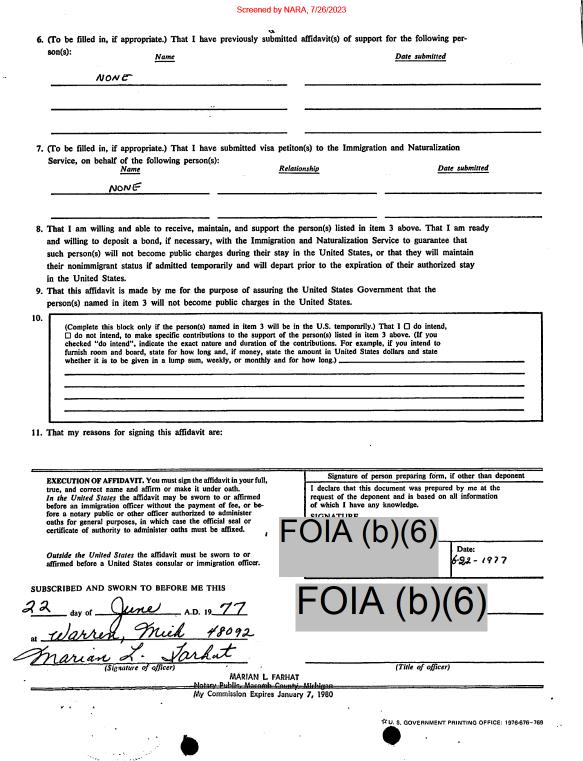 Screened by NARA, 7/26/2023
6. (To be filled in, if appropriate.) That I have previously submitted affidavit(s) of support for the following per-
son(s):
Name Date submitted
NONE
7. (To be filled in, if appropriate.) That I have submitted visa petiton(s) to the Immigration and Naturalization
Service, on behalf of the following person(s):
Name Relationship Date submitted
NONE
8. That I am willing and able to receive, maintain, and support the person(s) listed in item 3 above. That I am ready
and willing to deposit a bond, if necessary, with the Immigration and Naturalization Service to guarantee that
such person(s) will not become public charges during their stay in the United States, or that they will maintain
their nonimmigrant status if admitted temporarily and will depart prior to the expiration of their authorized stay
in the United States.
9. That this affidavit is made by me for the purpose of assuring the United States Government that the
person(s) named in item 3 will not become public charges in the United States.
10.
(Complete this block only if the person(s) named in item 3 will be in the U.S. temporarily.) That I ☐ do intend,
☐ do not intend, to make specific contributions to the support of the person(s) listed in item 3 above. (If you
checked "do intend", indicate the exact nature and duration of the contributions. For example, if you intend to
furnish room and board, state for how long and, if money, state the amount in United States dollars and state
whether it is to be given in a lump sum, weekly, or monthly and for how long.)
11. That my reasons for signing this affidavit are:
EXECUTION OF AFFIDAVIT. You must sign the affidavit in your full,
true, and correct name and affirm or make it under oath.
In the United States the affidavit may be sworn to or affirmed
before an immigration officer without the payment of fee, or be-
fore a notary public or other officer authorized to administer
oaths for general purposes, in which case the official seal or
certificate of authority to administer oaths must be affixed.
Outside the United States the affidavit must be sworn to or
affirmed before a United States consular or immigration officer.
Signature of person preparing form, if other than deponent
I declare that this document was prepared by me at the
request of the deponent and is based on all information
of which I have any knowledge.
SIGNATURE
FOIA (b)(6)
Date:
6-22-1977
FOIA (b)(6)
SUBSCRIBED AND SWORN TO BEFORE ME THIS
22 day of June A.D. 19 77
at Warren, Mich 48092
Marian L. Farhat
(Signature of officer) (Title of officer)
MARIAN L. FARHAT
Notary Public, Macomb County, Michigan
My Commission Expires January 7, 1980
☆ U. S. GOVERNMENT PRINTING OFFICE: 1976-676-769